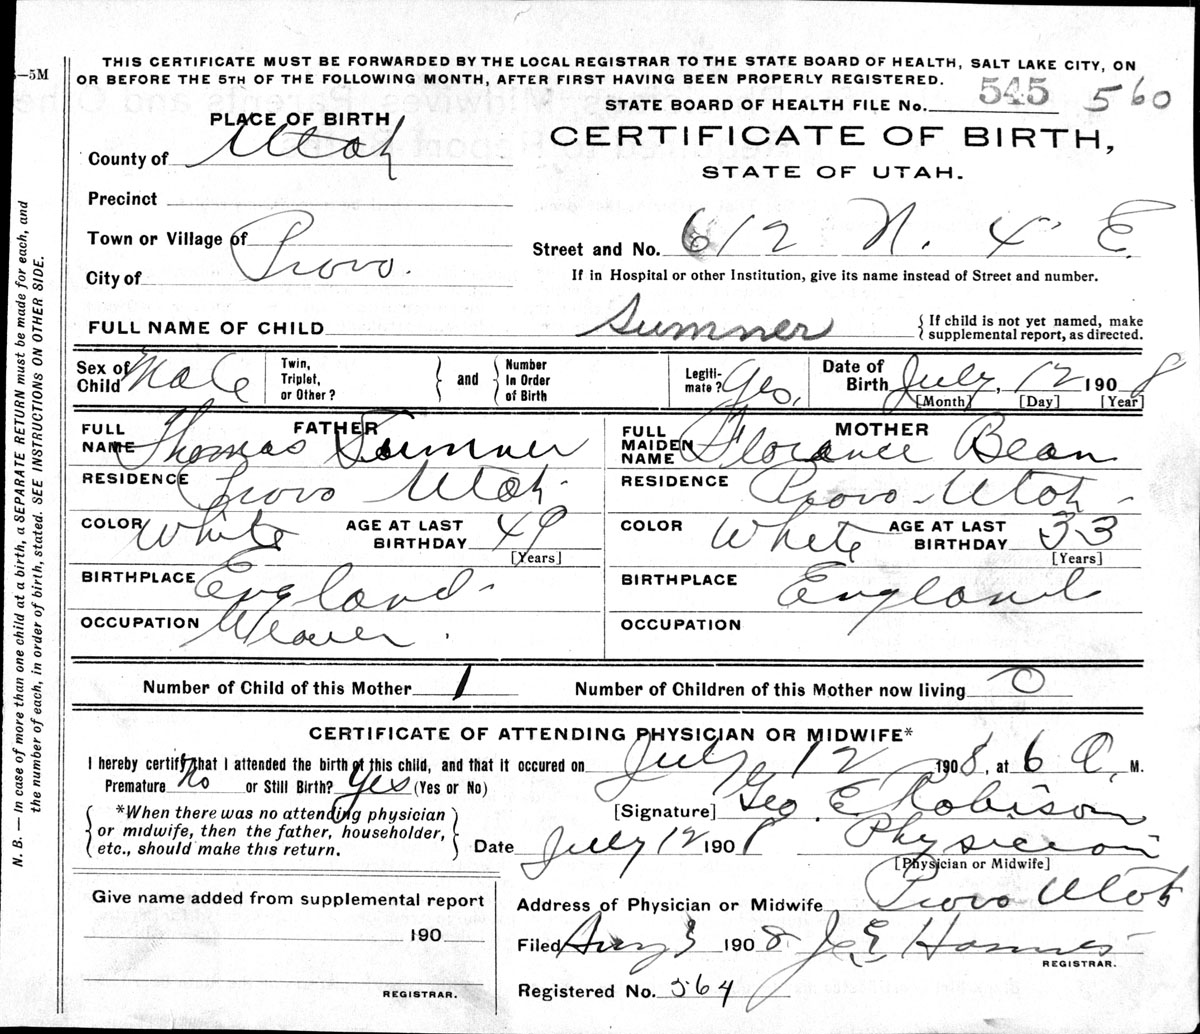 S—5M
THIS CERTIFICATE MUST BE FORWARDED BY THE LOCAL REGISTRAR TO THE STATE BOARD OF HEALTH, SALT LAKE CITY, ON
OR BEFORE THE 5TH OF THE FOLLOWING MONTH, AFTER FIRST HAVING BEEN PROPERLY REGISTERED.
STATE BOARD OF HEALTH FILE No. 545 560
PLACE OF BIRTH
CERTIFICATE OF BIRTH,
STATE OF UTAH.
County of Utah
Precinct
Town or Village of
City of Provo.
Street and No. 612 N. 4 E.
If in Hospital or other Institution, give its name instead of Street and number.
FULL NAME OF CHILD Sumner
{ If child is not yet named, make
supplemental report, as directed.
Sex of Child Male
Twin, Triplet, or Other?
and
Number In Order of Birth
Legiti-mate? Yes.
Date of Birth July, 12 1908
[Month] [Day] [Year]
FATHER
FULL NAME Thomas Sumner
RESIDENCE Provo Utah -
COLOR White AGE AT LAST BIRTHDAY 49
[Years]
BIRTHPLACE England -
OCCUPATION Weaver.
MOTHER
FULL MAIDEN NAME Florence Bean
RESIDENCE Provo - Utah -
COLOR White AGE AT LAST BIRTHDAY 33
[Years]
BIRTHPLACE England
OCCUPATION
Number of Child of this Mother 1 Number of Children of this Mother now living 0
CERTIFICATE OF ATTENDING PHYSICIAN OR MIDWIFE*
I hereby certify that I attended the birth of this child, and that it occured on July 12 1908, at 6 A. M.
Premature No or Still Birth? Yes (Yes or No)
[Signature] Geo. E Robison
*When there was no attending physician
or midwife, then the father, householder,
etc., should make this return.
Date July 12 1908 Physician
[Physician or Midwife]
Give name added from supplemental report
190
REGISTRAR.
Address of Physician or Midwife Provo Utah
Filed Aug 3 1908 J. E.
REGISTRAR.
Registered No. 564
N. B. — In case of more than one child at a birth, a SEPARATE RETURN must be made for each, and
the number of each, in order of birth, stated. SEE INSTRUCTIONS ON OTHER SIDE.